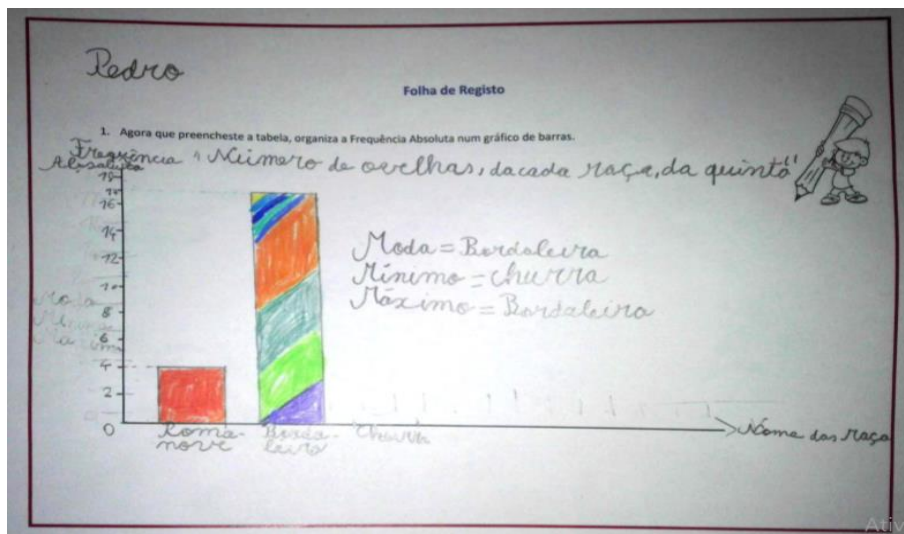 Pedro
Folha de Registo
1. Agora que preencheste a tabela, organiza a Frequência Absoluta num gráfico de barras.
Frequência
Absoluta
"Número de ovelhas, dacada raça, da quinta"
18
17
16
14
12
10
8
6
4
2
0
Moda = Bordaleira
Mínimo = churra
Máximo = Bordaleira
Moda
Mínimo
Máximo
Roma-
nove
Borda-
leira
Churra
Nome das raça
Ativ